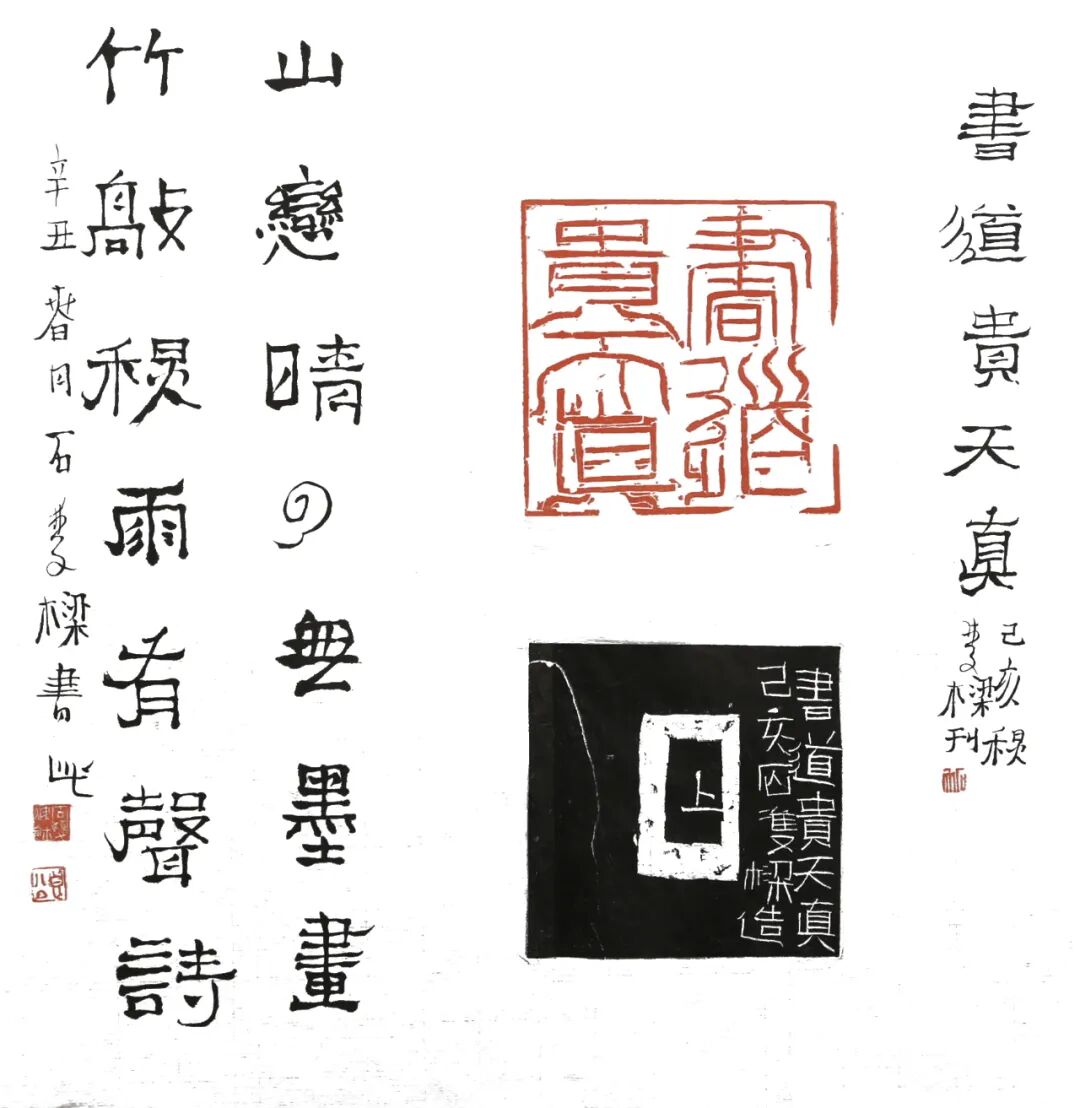 書道貴天真
己亥秋
樑刊
書道貴天真
書道貴天真
己亥雙樑造
上
山戀晴云無墨畫
竹敲秋雨有聲詩
辛丑春月石樑書